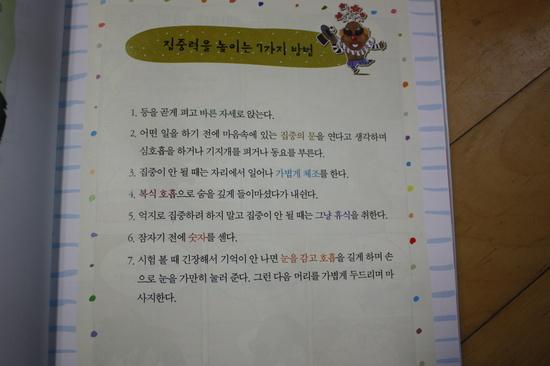 집중력을 높이는 7가지 방법
1. 등을 곧게 펴고 바른 자세로 앉는다.
2. 어떤 일을 하기 전에 마음속에 있는 집중의 문을 연다고 생각하며
심호흡을 하거나 기지개를 펴거나 동요를 부른다.
3. 집중이 안 될 때는 자리에서 일어나 가볍게 체조를 한다.
4. 복식 호흡으로 숨을 깊게 들이마셨다가 내쉰다.
5. 억지로 집중하려 하지 말고 집중이 안 될 때는 그냥 휴식을 취한다.
6. 잠자기 전에 숫자를 센다.
7. 시험 볼 때 긴장해서 기억이 안 나면 눈을 감고 호흡을 길게 하며 손
으로 눈을 가만히 눌러 준다. 그런 다음 머리를 가볍게 두드리며 마
사지한다.